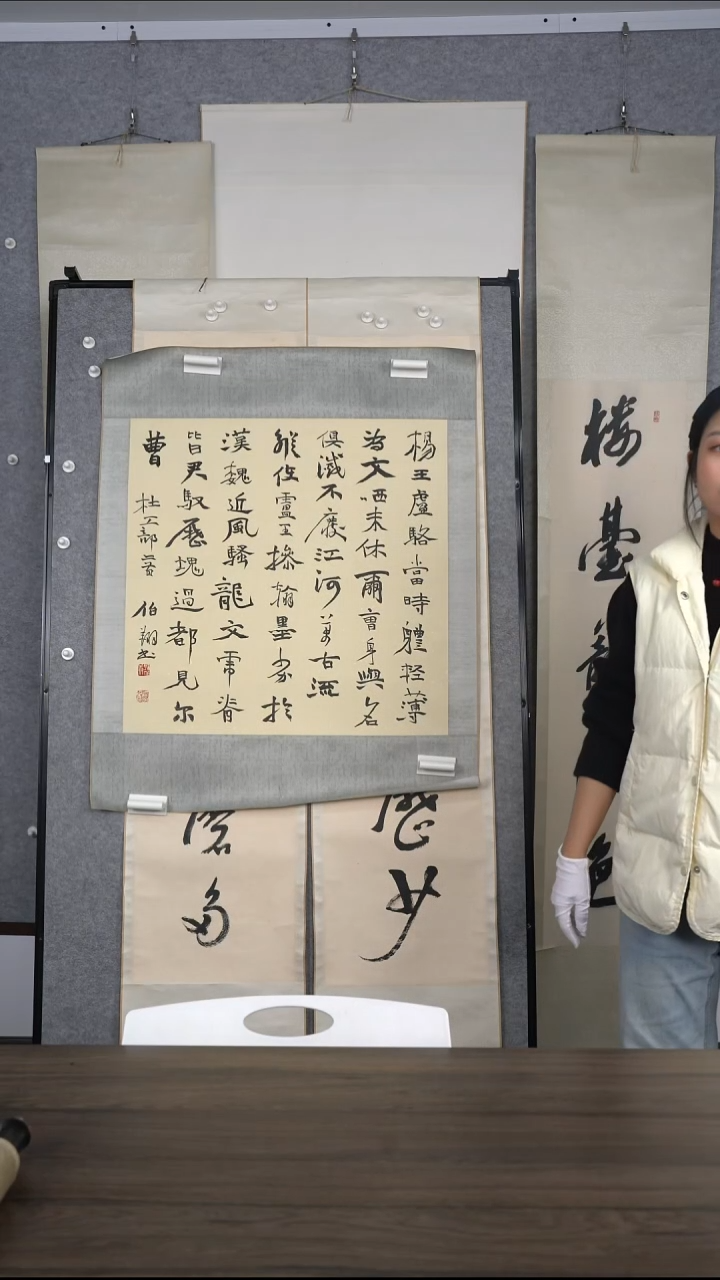 楊王盧駱當時體輕薄
為文哂未休爾曹身與名
俱滅不廢江河萬古流
縱使盧王操翰墨劣於
漢魏近風騷龍文虎脊
皆君馭歷塊過都見尔
曹
杜工部 伯翔書
楼臺
色